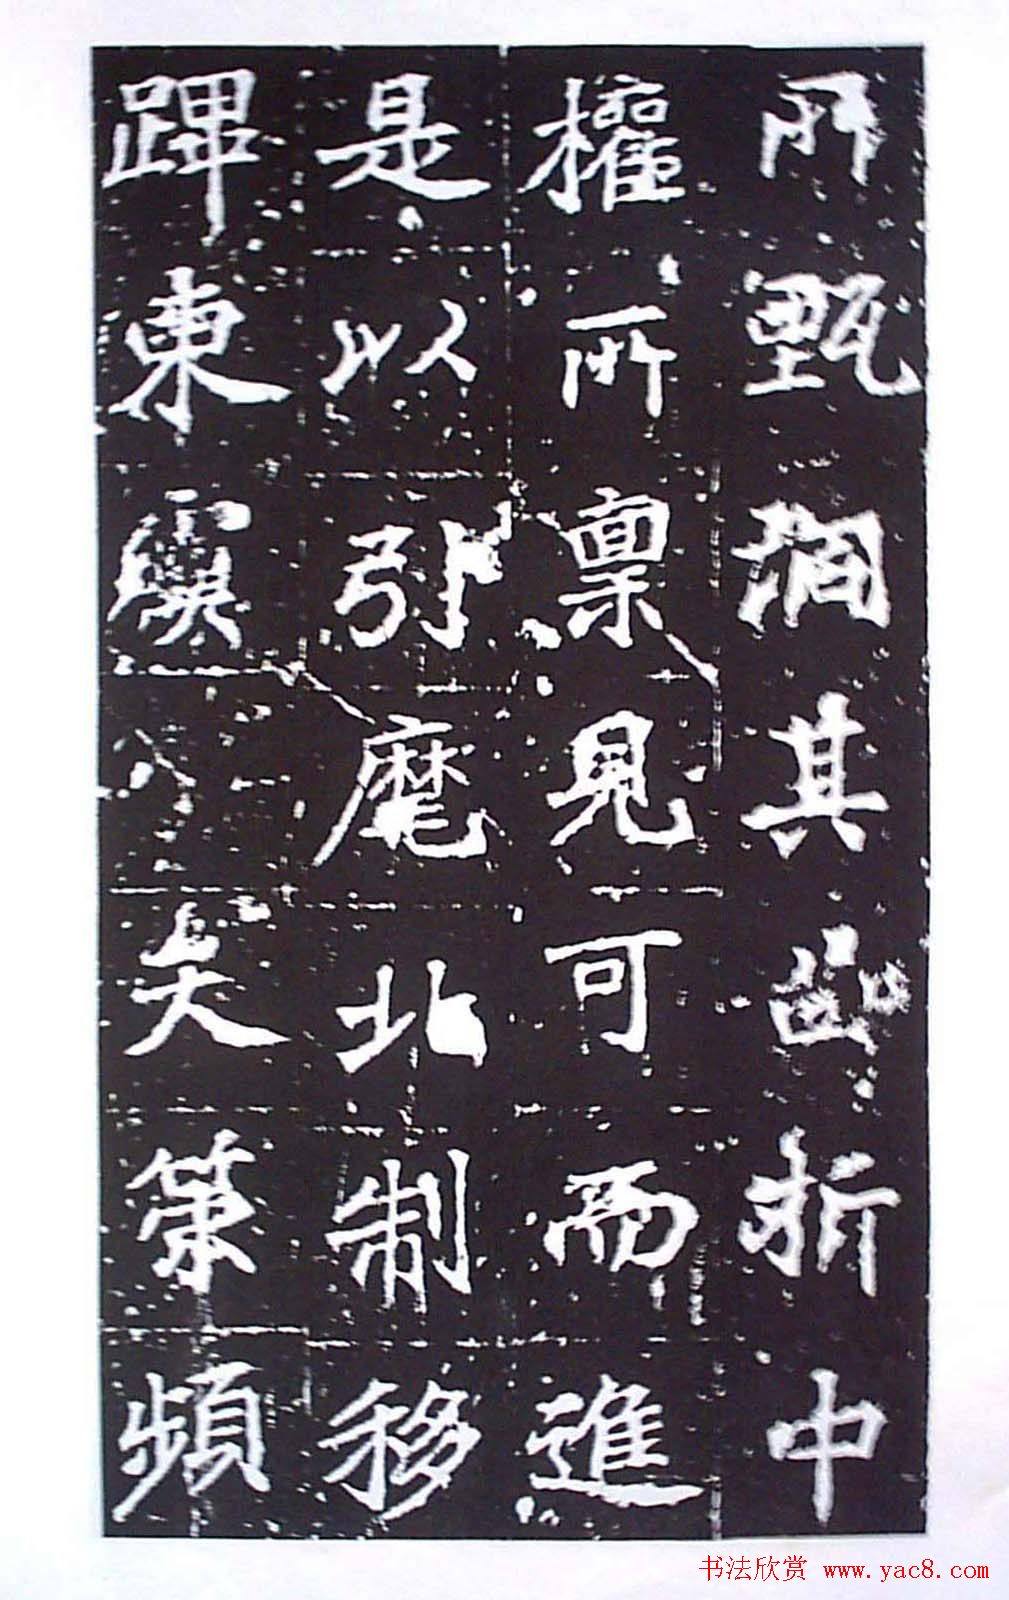 所甄洞其幽折中
權所稟見可而進
是以引麾北制移
東矣策頻
书法欣赏 www.yac8.com